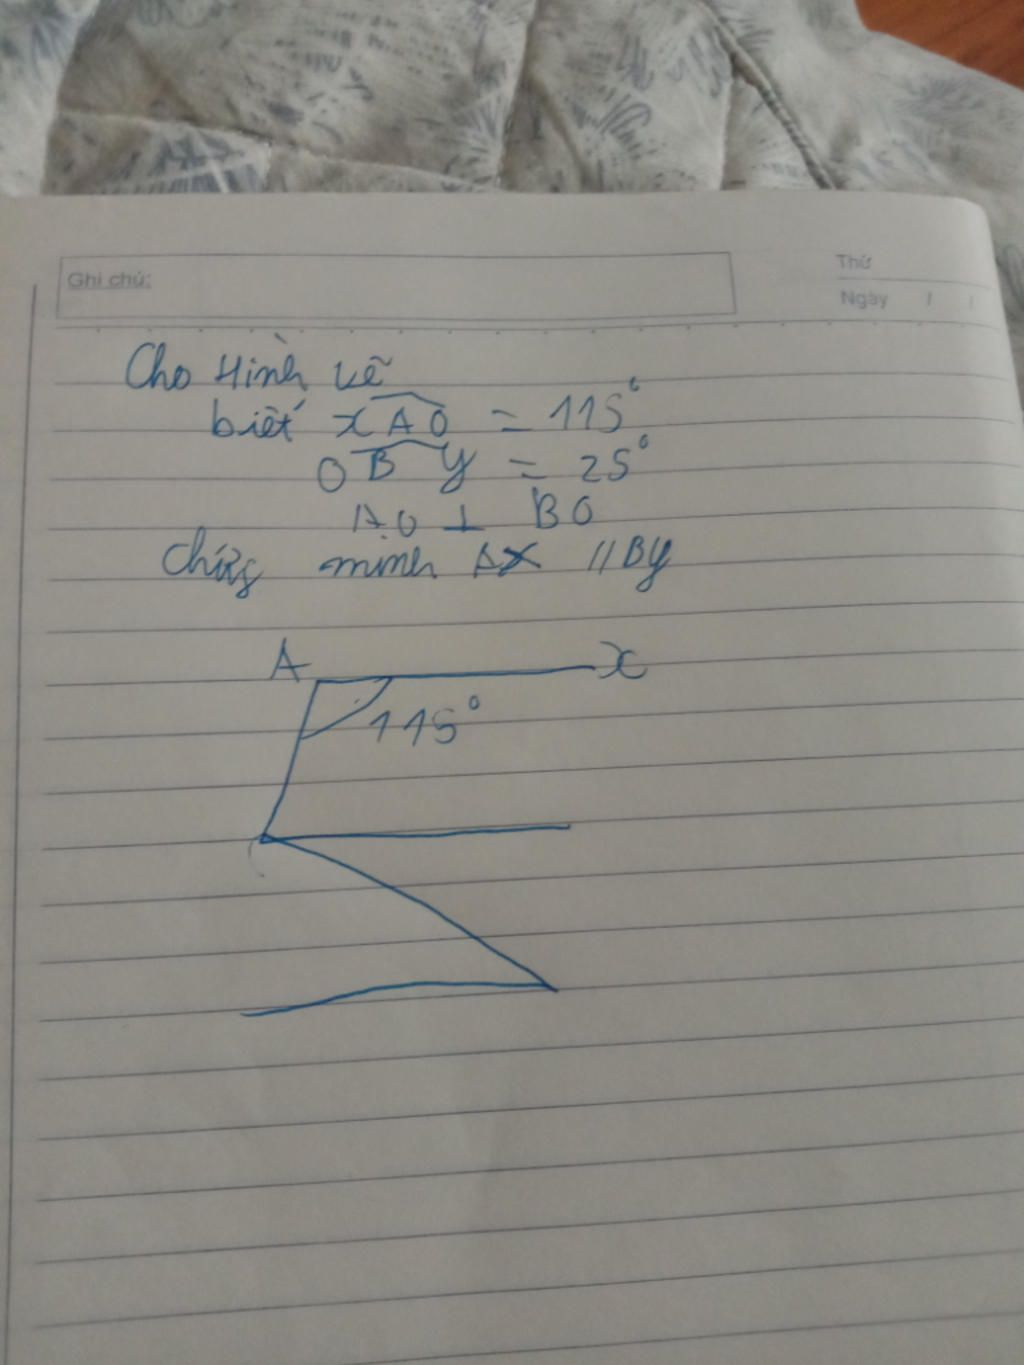 Ghi chú:
Thứ
Ngày / /
Cho Hình vẽ
biết xAO = 115°
OBy = 25°
AO ⊥ BO
Chứng minh Ax // By
A x
115°